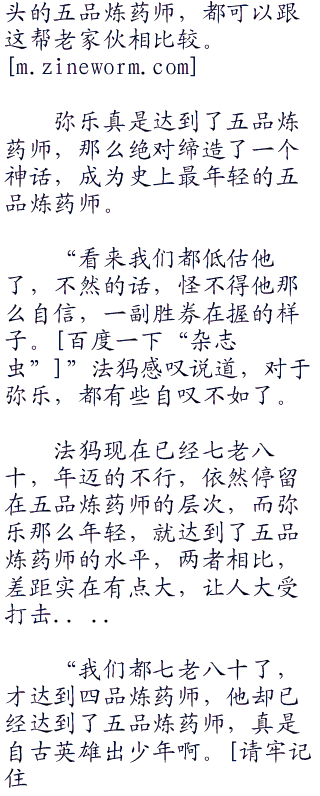 头的五品炼药师，都可以跟
这帮老家伙相比较。
[m.zineworm.com]
弥乐真是达到了五品炼
药师，那么绝对缔造了一个
神话，成为史上最年轻的五
品炼药师。
“看来我们都低估他
了，不然的话，怪不得他那
么自信，一副胜券在握的样
子。[百度一下“杂志
虫”]”法犸感叹说道，对于
弥乐，都有些自叹不如了。
法犸现在已经七老八
十，年迈的不行，依然停留
在五品炼药师的层次，而弥
乐那么年轻，就达到了五品
炼药师的水平，两者相比，
差距实在有点大，让人大受
打击.. ..
“我们都七老八十了，
才达到四品炼药师，他却已
经达到了五品炼药师，真是
自古英雄出少年啊。[请牢记
住